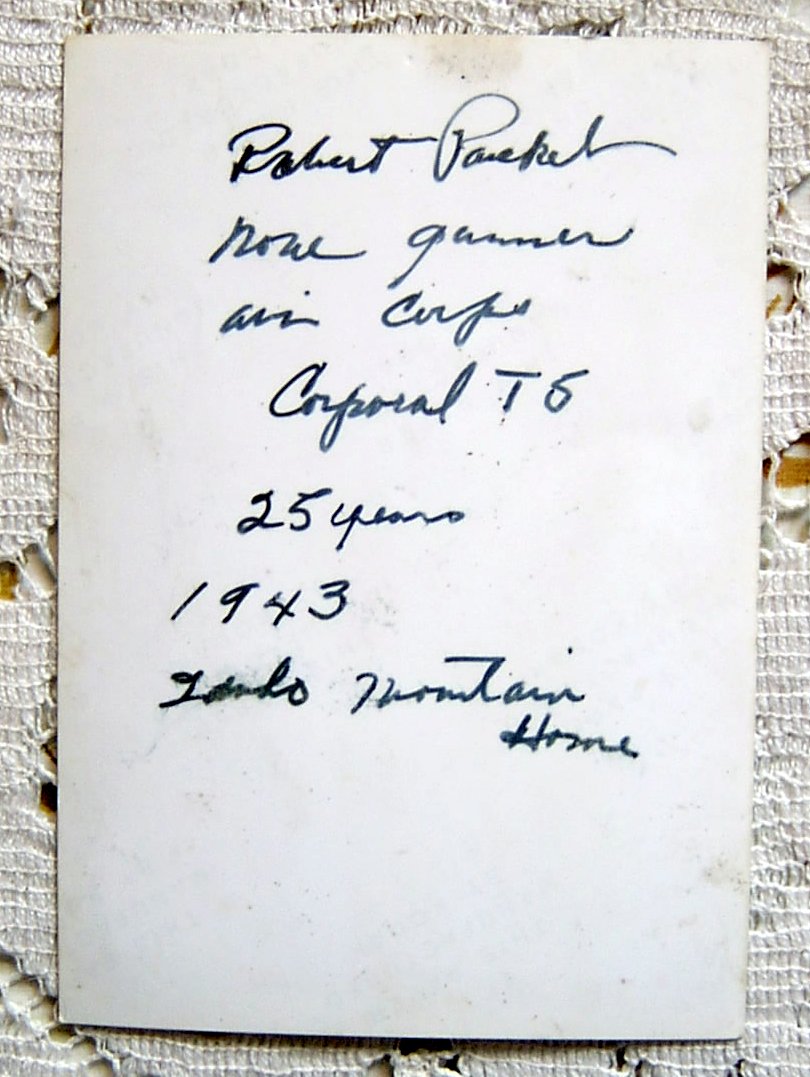 Robert
nose gunner
air Corps
Corporal T5
25 years
1943
Idaho Mountain
Home